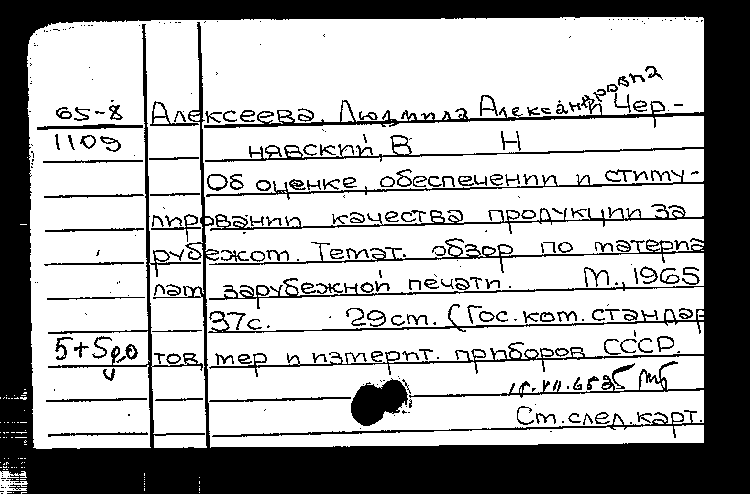 65-8 Алексеева, Людмила Александровна и Чер-
1109 нявский, В Н
Об оценке, обеспечении и стиму-
лировании качества продукции за
рубежом. Темат. обзор по материа
лам зарубежной печати. М., 1965
37с. 29см. (Гос. ком. стандар
5+5 тов, мер и измерит. приборов СССР.
Ст. след. карт.